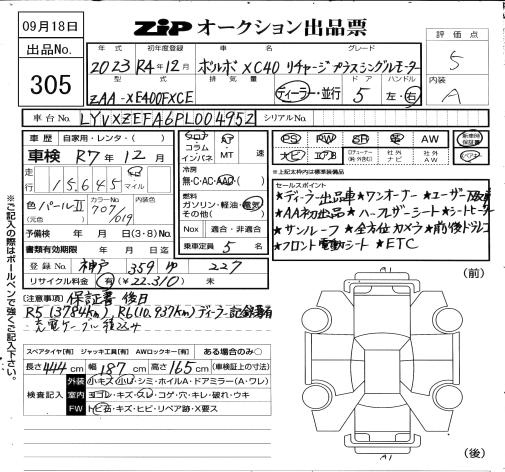 09月18日
出品No.
305
ZIP オークション出品票
評価点
5
内装
A
年式 初年度登録 車名 グレード
2023 R4年12月 ボルボ XC40 リチャージプラスシングルモーター
型式 排気量 ドア ハンドル
ZAA-XE400FXCE ディーラー・並行 5 左・右
車台No. LYVXZEFA6PL004952 シリアルNo.
車歴 自家用・レンタ・( )
車検 R7年12月
走行 15,645 マイル
色 パールⅡ カラーNo. 707/019 内装色
(元色
予備検 年 月 日(3・8)No.
書類有効期限 年 月 日迄
登録No. 神戸 359 ゆ 227
リサイクル料金 有(¥22,310) 未
フロア コラム インパネ
AT・MT 速
冷房
無・C・AC・AAC・( )
燃料
ガソリン・軽油・電気
その他( )
Nox 適合・非適合
乗車定員 5 名
PS PW SR 革 AW 新車時保証書
ナビ エアB 社外ナビ 社外AW
※上記太枠内は標準装備品
セールスポイント
★ディーラー出品車★ワンオーナー★ユーザー買取車
★AA初出品★ハーフレザーシート★シートヒーター
★サンルーフ★全方位カメラ★前後ドラレコ
★フロント電動シート★ETC
(注意事項) 保証書後日
R5(3784km)、R6(10,937km)ディーラー記録簿有
充電ケーブル積込み
スペアタイヤ[有] ジャッキ工具[有] AWロックキー[有] ある場合のみ○
長さ444cm 幅187cm 高さ165cm (車検証上の寸法)
検査記入
外装 小キズ・小凹・シミ・ホイルA・ドアミラー(A・ワレ)
室内 ヨゴレ・キズ・スレ・コゲ・穴・キレ・破れ・ウキ
FW トビ石・キズ・ヒビ・リペア跡・X要ス
(前)
(後)
※ご記入の際はボールペンで強くご記入下さい。